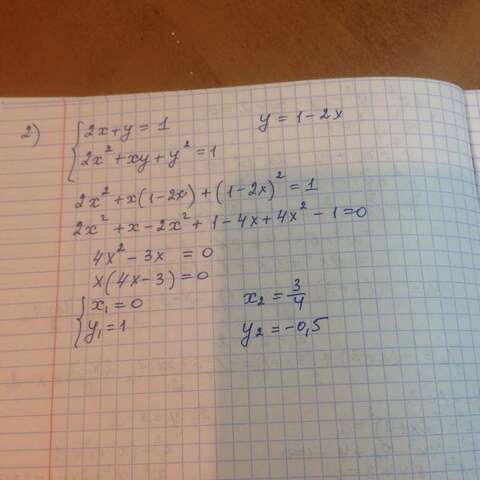 2) { 2x+y=1    y=1-2x
{ 2x²+xy+y²=1
2x²+x(1-2x)+(1-2x)²=1
2x²+x-2x²+1-4x+4x²-1=0
4x²-3x=0
x(4x-3)=0
{ x₁=0    x₂=3/4
{ y₁=1    y₂=-0,5